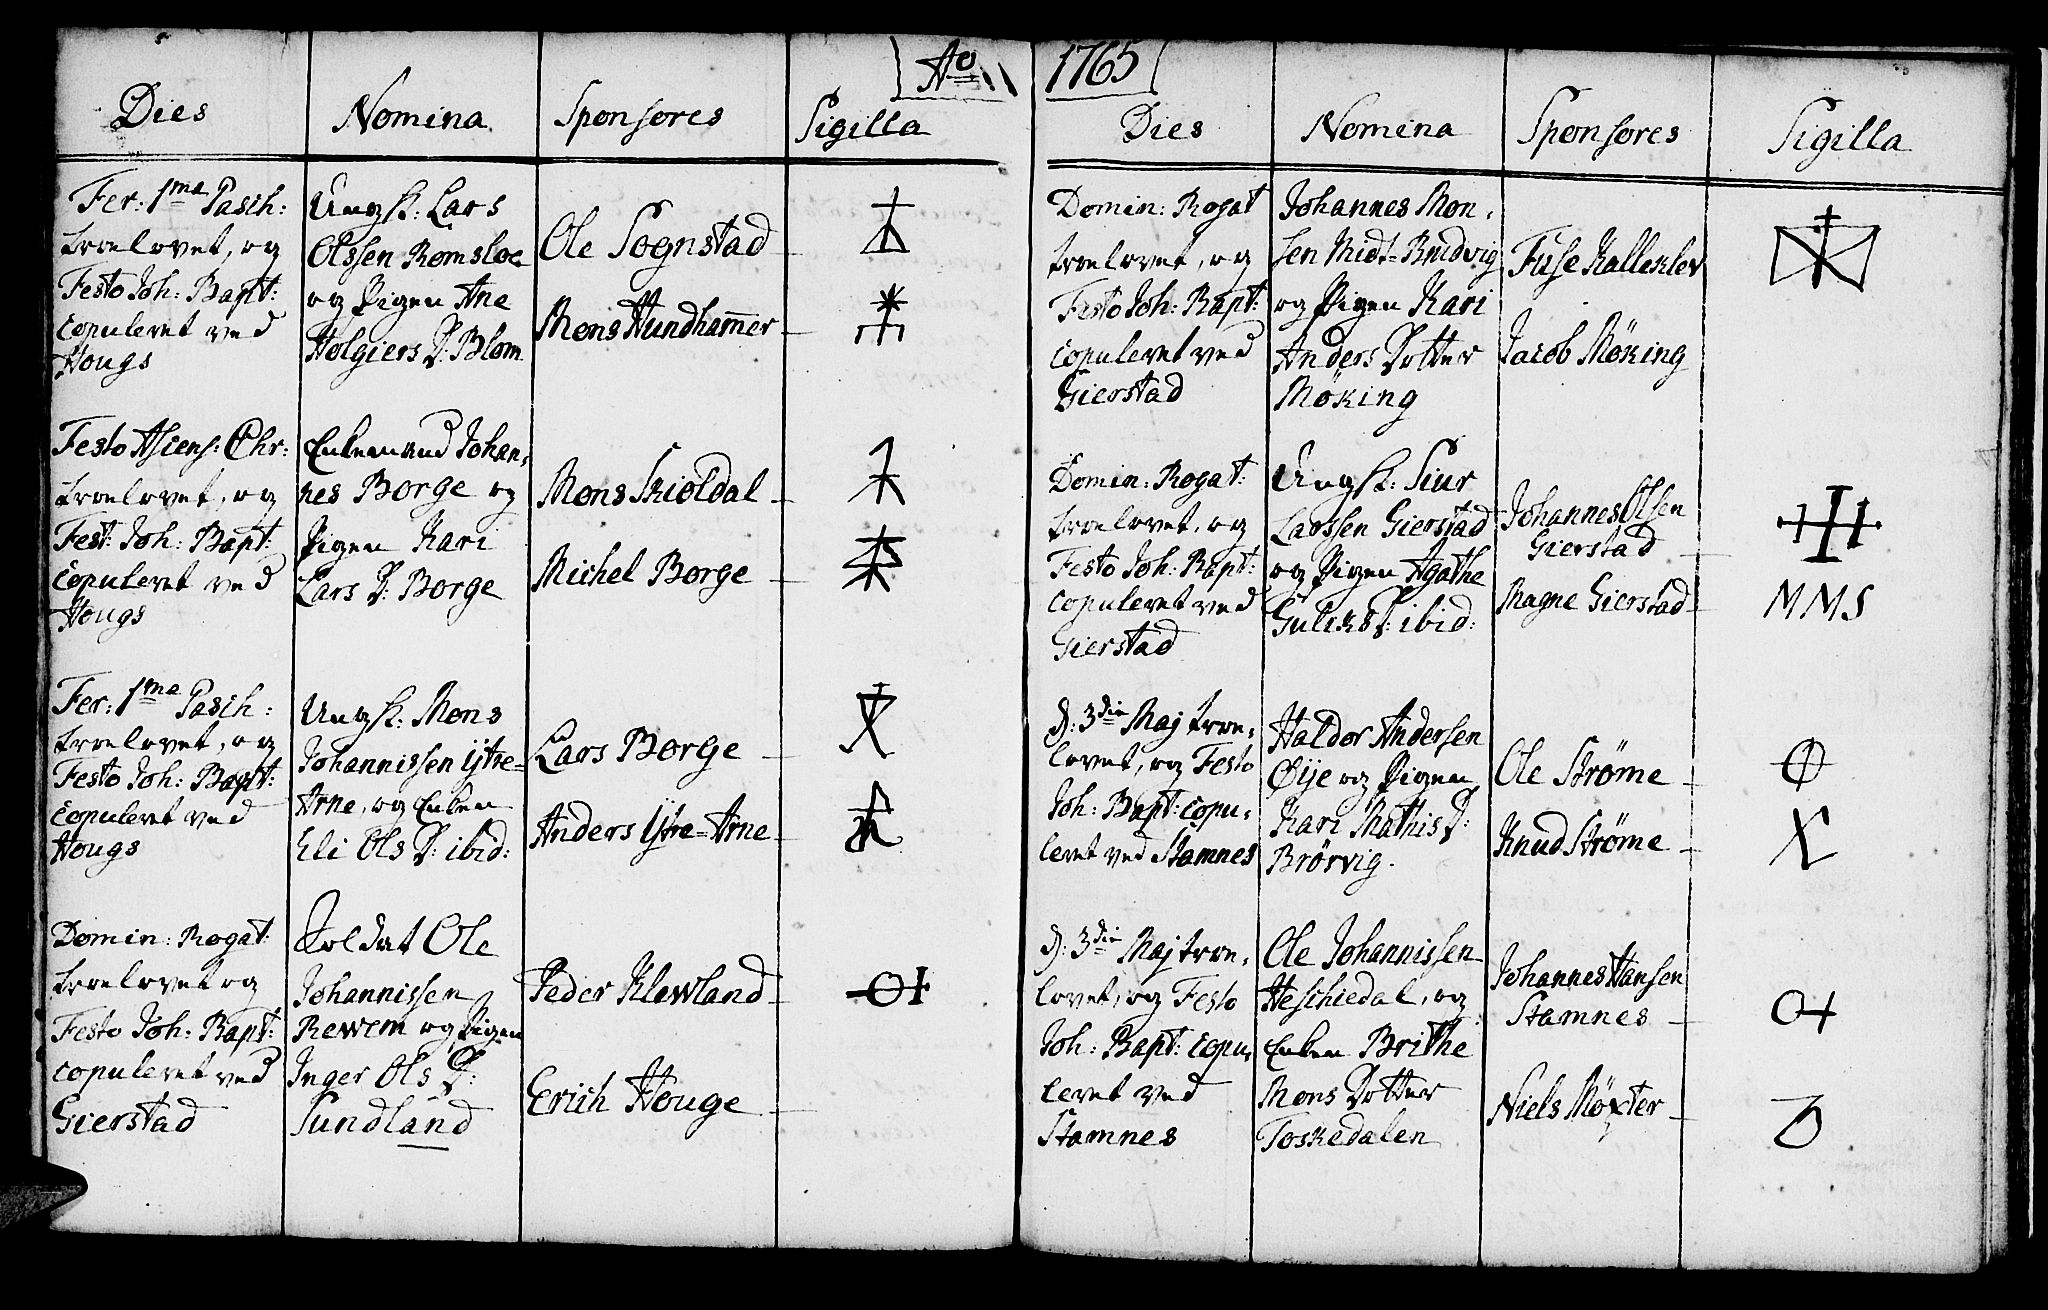 Ao 1765
Dies Nomina Sponsores Sigilla
Fer: 1ma Pasch:
troelovet, og
Festo Joh: Bapt:
copuleret ved
Hougs
Ungk: Lars
Olssen Romsloe
og Pigen Ane
Holgiers D: Blom
Ole Sognstad
Mons Hundham̄er
Festo Asiens: Chr:
troelovet, og
Fest: Joh: Bapt:
copuleret ved
Hougs
Enkemand Johan,
nes Borge og
Pigen Kari
Lars D: Borge
Mons Skioldal
Michel Borge
Fer: 1ma Pasch:
troelovet, og
Festo Joh: Bapt:
copuleret ved
Hougs
Ungk: Mons
Johannissen Ytre=
Arne, og Enken
Eli Ols D: ibid:
Lars Borge
Anders Ytre=Arne
Domin: Rogat:
troelovet og
Festo Joh: Bapt:
copuleret ved
Gierstad
Soldat Ole
Johannissen
Rewem og Pigen
Inger Ols D:
Sundland
Peder Klewland
Erich Houge
Dies Nomina Sponsores Sigilla
Domin: Rogat
troelovet, og
Festo Joh: Bapt:
copuleret ved
Gierstad
Johannes Mon,
sen Midt=Brudvig
og Pigen Kari
Anders Dotter
Möking
Fuse Kalleklev
Jacob Möking
Domin: Rogat:
troelovet, og
Festo Joh: Bapt:
copuleret ved
Gierstad
Ungk: Siur
Larssen Gierstad
og Pigen Agathe
Guliks D: ibid:
Johannes Olsen
Gierstad
Magne Gierstad
MMS
d: 3die Maj troe,
lovet, og Festo
Joh: Bapt: copu,
leret ved Stamnes
Haldor Andersen
Øije og Pigen
Kari Mathis D:
Brörvig.
Ole Strøme
Knud Strøme
d: 3die Maj troe,
lovet, og Festo
Joh: Bapt: copu,
leret ved
Stamnes
Ole Johannissen
Heschiedal, og
Enken Brithe
Mons Dotter
Toskedalen
Johannes Hansen
Stamnes
Niels Möxter